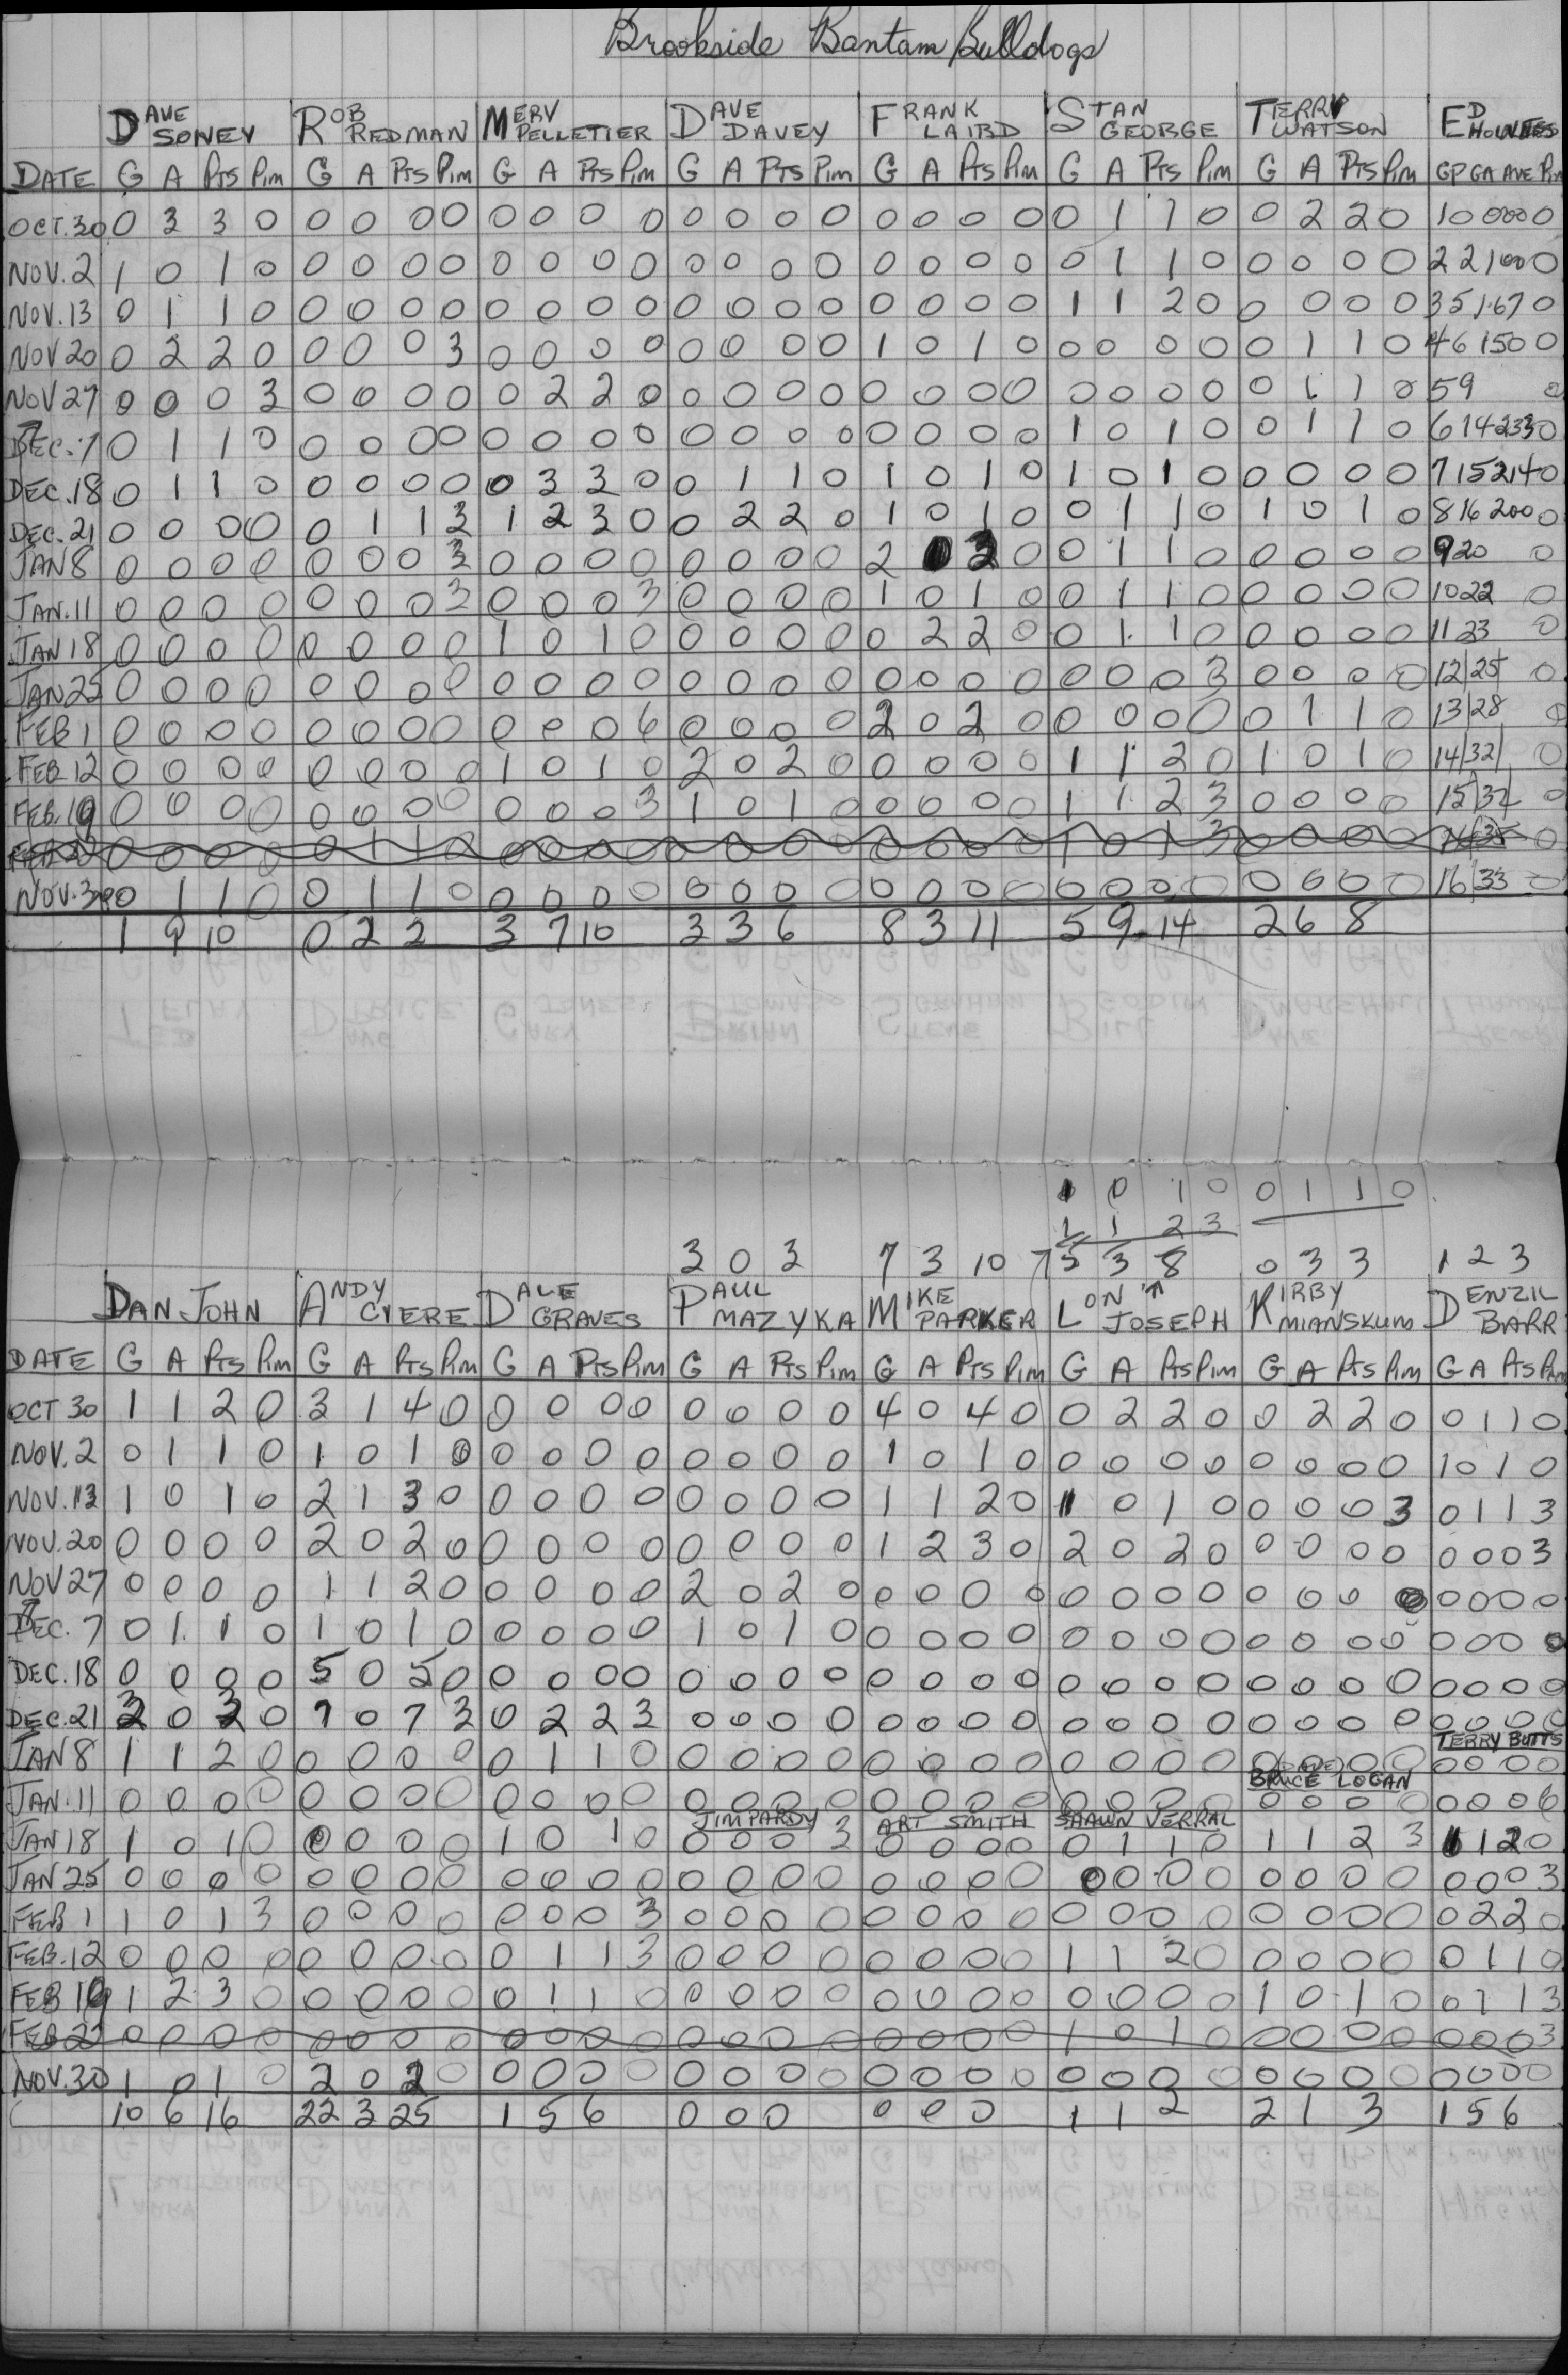 Brookside Bantam Bulldogs
DAVE SONEY ROB REDMAN MERV PELLETIER DAVE DAVEY FRANK LAIRD STAN GEORGE TERRY WATSON ED
DATE G A Pts Pim G A Pts Pim G A Pts Pim G A Pts Pim G A Pts Pim G A Pts Pim G A Pts Pim GP GA AVE Pim
OCT.30 0 3 3 0 0 0 0 0 0 0 0 0 0 0 0 0 0 0 0 0 0 1 1 0 0 2 2 0 1 0 0000 0
NOV.2 1 0 1 0 0 0 0 0 0 0 0 0 0 0 0 0 0 0 0 0 0 1 1 0 0 0 0 0 2 2 1000 0
NOV.13 0 1 1 0 0 0 0 0 0 0 0 0 0 0 0 0 0 0 0 0 1 1 2 0 0 0 0 0 3 5 1.67 0
NOV 20 0 2 2 0 0 0 0 3 0 0 0 0 0 0 0 0 1 0 1 0 0 0 0 0 0 1 1 0 4 6 150 0
NOV 27 0 0 0 3 0 0 0 0 0 2 2 0 0 0 0 0 0 0 0 0 0 0 0 0 0 1 1 0 5 9 0
DEC.7 0 1 1 0 0 0 0 0 0 0 0 0 0 0 0 0 0 0 0 0 1 0 1 0 0 1 1 0 6 14 233 0
DEC.18 0 1 1 0 0 0 0 0 0 3 3 0 0 1 1 0 1 0 1 0 1 0 1 0 0 0 0 0 7 15 214 0
DEC.21 0 0 0 0 0 1 1 3 1 2 3 0 0 2 2 0 1 0 1 0 0 1 1 0 1 0 1 0 8 16 200 0
JAN 8 0 0 0 0 0 0 0 3 0 0 0 0 0 0 0 0 2 0 0 1 1 0 0 0 0 0 9 20 0
JAN.11 0 0 0 0 0 0 0 3 0 0 0 3 0 0 0 0 1 0 1 0 0 1 1 0 0 0 0 0 10 22 0
JAN 18 0 0 0 0 0 0 0 0 1 0 1 0 0 0 0 0 0 2 2 0 0 1 1 0 0 0 0 0 11 23 0
JAN 25 0 0 0 0 0 0 0 0 0 0 0 0 0 0 0 0 0 0 0 0 0 0 0 3 0 0 0 0 12 25 0
FEB 1 0 0 0 0 0 0 0 0 0 0 0 6 0 0 0 0 2 0 2 0 0 0 0 0 0 1 1 0 13 28 0
FEB 12 0 0 0 0 0 0 0 0 1 0 1 0 2 0 2 0 0 0 0 0 1 1 2 0 1 0 1 0 14 32 0
FEB.19 0 0 0 0 0 0 0 0 0 0 0 3 1 0 1 0 0 0 0 0 1 1 2 3 0 0 0 0 15 32 0
0 0 0 0 0 1 1 0 0 0 0 0 0 0 0 0 0 0 0 1 0 1 3 0 0 0 0 0
NOV.30 0 1 1 0 0 1 1 0 0 0 0 0 0 0 0 0 0 0 0 0 0 0 0 0 0 0 0 0 16 33 0
1 9 10 0 2 2 3 7 10 3 3 6 8 3 11 5 9 14 2 6 8
1 0 1 0 0 1 1 0
1 1 2 3
3 0 3 7 3 10 5 3 8 0 3 3 1 2 3
DAN JOHN ANDY CYERE DALE GRAVES PAUL MAZYKA MIKE PARKER LON JOSEPH KIRBY MIANSKUM DENZIL BARR
DATE G A Pts Pim G A Pts Pim G A Pts Pim G A Pts Pim G A Pts Pim G A Pts Pim G A Pts Pim G A Pts Pim
OCT 30 1 1 2 0 3 1 4 0 0 0 0 0 0 0 0 0 4 0 4 0 0 2 2 0 0 2 2 0 0 1 1 0
NOV.2 0 1 1 0 1 0 1 0 0 0 0 0 0 0 0 0 1 0 1 0 0 0 0 0 0 0 0 0 1 0 1 0
NOV.13 1 0 1 0 2 1 3 0 0 0 0 0 0 0 0 0 1 1 2 0 1 0 1 0 0 0 0 3 0 1 1 3
NOV.20 0 0 0 0 2 0 2 0 0 0 0 0 0 0 0 0 1 2 3 0 2 0 2 0 0 0 0 0 0 0 0 3
NOV 27 0 0 0 0 1 1 2 0 0 0 0 0 2 0 2 0 0 0 0 0 0 0 0 0 0 0 0 0 0 0 0 0
DEC.7 0 1 1 0 1 0 1 0 0 0 0 0 1 0 1 0 0 0 0 0 0 0 0 0 0 0 0 0 0 0 0 0
DEC.18 0 0 0 0 5 0 5 0 0 0 0 0 0 0 0 0 0 0 0 0 0 0 0 0 0 0 0 0 0 0 0 0
DEC.21 3 0 3 0 7 0 7 3 0 2 2 3 0 0 0 0 0 0 0 0 0 0 0 0 0 0 0 0 0 0 0 0
TERRY BUTTS
JAN 8 1 1 2 0 0 0 0 0 0 1 1 0 0 0 0 0 0 0 0 0 0 0 0 0 0 0 0 0 0 0 0
BRUCE LOGAN
JAN.11 0 0 0 0 0 0 0 0 0 0 0 0 0 0 0 0 0 0 0 0 0 0 0 0 0 0 0 0 0 0 0 6
JIM PARDY ART SMITH SHAWN VERRAL
JAN 18 1 0 1 0 0 0 0 0 1 0 1 0 0 0 0 3 0 0 0 0 0 1 1 0 1 1 2 3 1 1 2 0
JAN 25 0 0 0 0 0 0 0 0 0 0 0 0 0 0 0 0 0 0 0 0 0 0 0 0 0 0 0 0 0 0 0 3
FEB 1 1 0 1 3 0 0 0 0 0 0 0 3 0 0 0 0 0 0 0 0 0 0 0 0 0 0 0 0 0 2 2 0
FEB.12 0 0 0 0 0 0 0 0 0 1 1 3 0 0 0 0 0 0 0 0 1 1 2 0 0 0 0 0 0 1 1 0
FEB 19 1 2 3 0 0 0 0 0 0 1 1 0 0 0 0 0 0 0 0 0 0 0 0 0 1 0 1 0 0 1 1 3
FEB 22 0 0 0 0 0 0 0 0 0 0 0 0 0 0 0 0 0 0 0 0 1 0 1 0 0 0 0 0 0 0 0 3
NOV.30 1 0 1 0 2 0 2 0 0 0 0 0 0 0 0 0 0 0 0 0 0 0 0 0 0 0 0 0 0 0 0 0
10 6 16 22 3 25 1 5 6 0 0 0 0 0 0 1 1 2 2 1 3 1 5 6